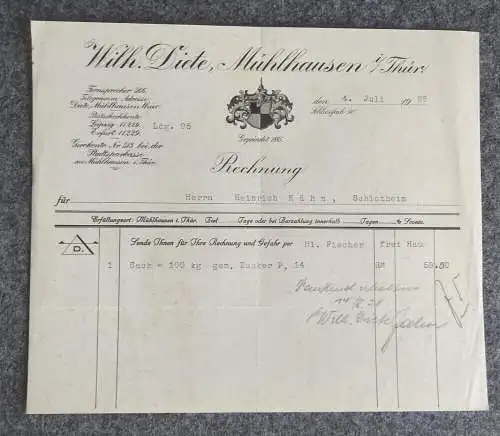 Wilh. Diete, Mühlhausen i/Thür.
Fernsprecher
Telegramm Adresse:
Diete, Mühlhausen Thür.
Postscheckkonto:
Leipzig 11229.
Erfurt 11229.
Girokonto Nr 213 bei der
Stadtsparkasse
zu Mühlhausen i. Thür.
Log. 95
den 4. Juli 19
Gegründet
Rechnung
für Herrn Heinrich Kühn, Schlotheim
Erfüllungsort: Mühlhausen i. Thür. Ziel Tage oder bei Barzahlung innerhalb Tagen % Sconto.
D.
Sende Ihnen für Ihre Rechnung und Gefahr per Hl. Fischer frei Haus
1 Sack = 100 kg gem. P, 14 RM
Dankend erhalten
Wilh. Diete